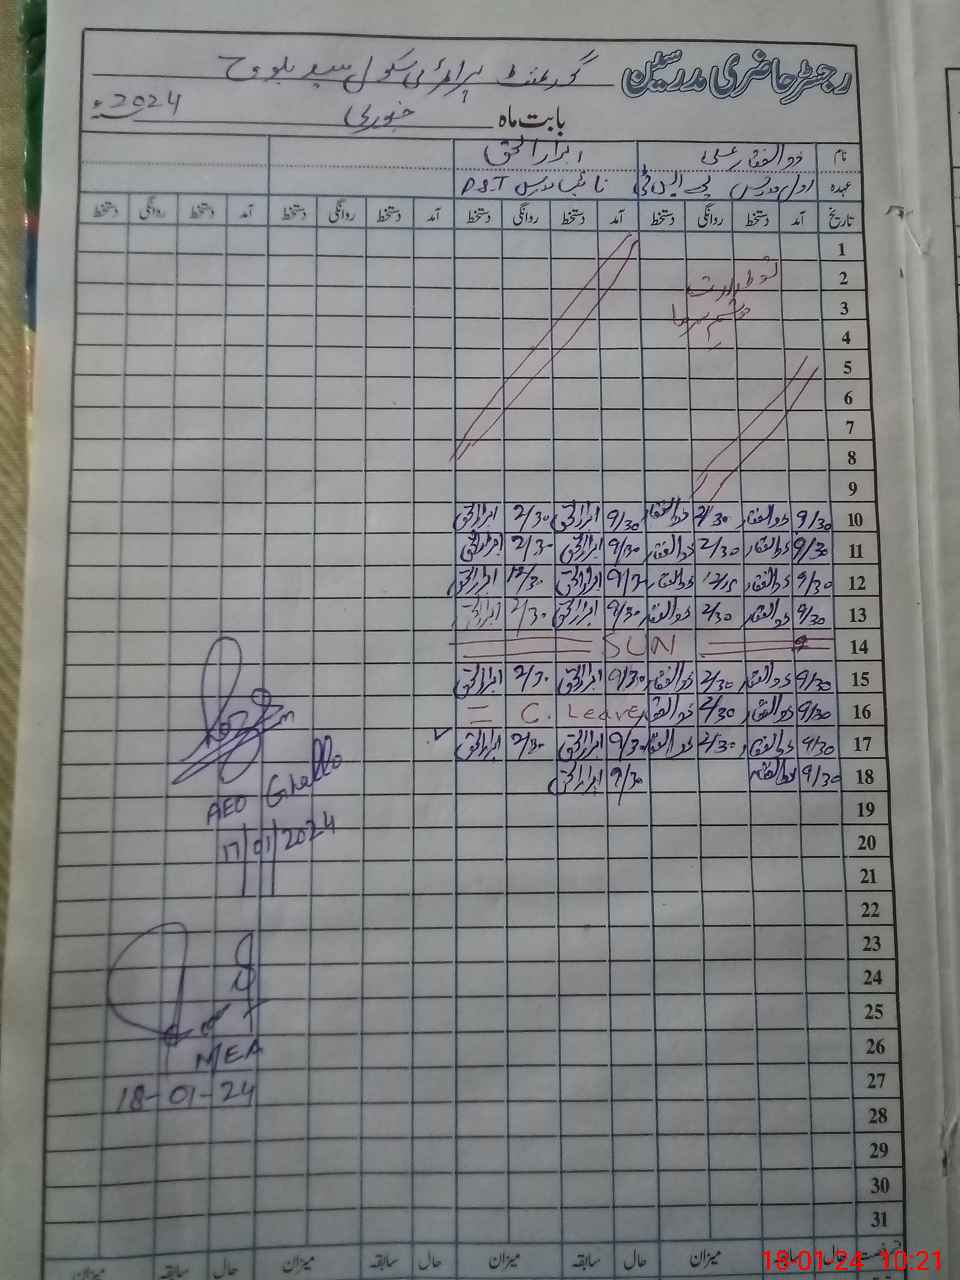 رجسٹر حاضری مدرسین
گورنمنٹ پرائمری سکول سید بلوچ
بابت ماہ جنوری 2024ء
نام ذوالفقار علی ابرارالحق
عہدہ اول مدرس پی ایس ٹی نائب مدرس P.S.T
تاریخ آمد دستخط روانگی دستخط آمد دستخط روانگی دستخط آمد دستخط روانگی دستخط آمد دستخط روانگی دستخط
1
2
3
4
5
6
7
8
9
10 9/30 ذوالفقار 2/30 ذوالفقار 9/30 ابرارالحق 2/30 ابرارالحق
11 9/30 ذوالفقار 2/30 ذوالفقار 9/30 ابرارالحق 2/30 ابرارالحق
12 9/30 ذوالفقار ذوالفقار 9/30 ابرارالحق 12/30 ابرارالحق
13 9/30 ذوالفقار 2/30 ذوالفقار 9/30 ابرارالحق 2/30 ابرارالحق
14 SUN
15 9/30 ذوالفقار 2/30 ذوالفقار 9/30 ابرارالحق 2/30 ابرارالحق
16 9/30 ذوالفقار 2/30 ذوالفقار C. Leave
17 9/30 ذوالفقار 2/30 ذوالفقار 9/30 ابرارالحق 2/30 ابرارالحق
18 9/30 ذوالفقار 9/30 ابرارالحق
19
20
21
22
23
24
25
26
27
28
29
30
31
AEO Ghello
17/01/2024
MEA
18-01-24
حال سابقہ میزان حال سابقہ میزان حال سابقہ میزان حال سابقہ میزان
18-01-24 10:21